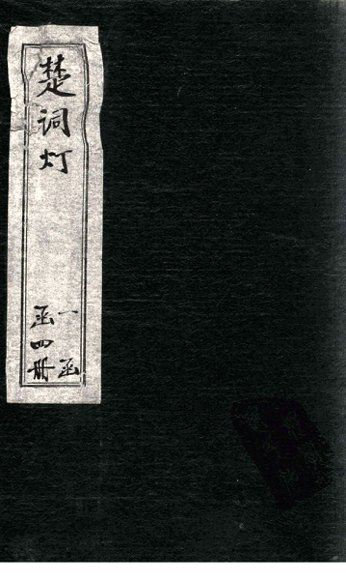 楚词灯
一函
函四册